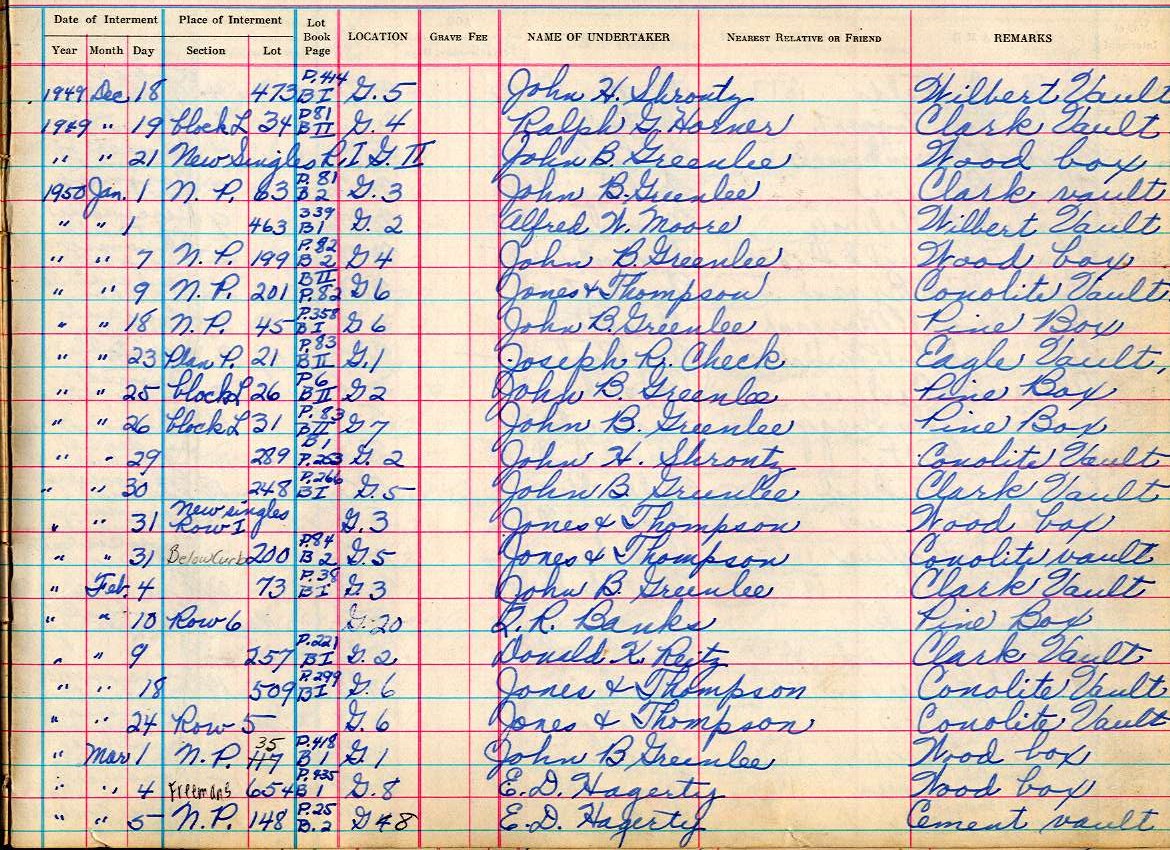 Date of Interment Place of Interment Lot Book Page LOCATION GRAVE FEE NAME OF UNDERTAKER NEAREST RELATIVE OR FRIEND REMARKS
Year Month Day Section Lot
1949 Dec 18 473 P.414 B I G. 5 John H. Shrontz Wilbert Vault
1949 " 19 block L 34 P81 B II G. 4 Ralph G. Horner Clark Vault
" " 21 New Singles R. I G. II John B. Greenlee Wood box
1950 Jan. 1 N. P. 63 P. 81 B 2 G. 3 John B. Greenlee Clark vault
" " 1 463 339 B 1 G. 2 Alfred W. Moore Wilbert Vault
" " 7 N. P. 199 P.82 B 2 G 4 John B. Greenlee Wood box
" " 9 N. P. 201 B II P.82 G 6 Jones & Thompson Conolite Vault
" " 18 N. P. 45 P.358 B I G 6 John B. Greenlee Pine Box
" " 23 Plan P. 21 P. 83 B II G. 1 Joseph R. Check Eagle Vault,
" " 25 block L 26 P6 B II G 2 John B. Greenlee Pine Box
" " 26 block L 31 P. 83 B II G 7 John B. Greenlee Pine Box
" " 29 289 B 1 P.253 G. 2 John H. Shrontz Conolite Vault
" " 30 248 P.266 B I G. 5 John B. Greenlee Clark Vault
" " 31 New singles Row I G. 3 Jones & Thompson Wood box
" " 31 Below Curb 200 P.84 B 2 G. 5 Jones & Thompson Conolite vault
" Feb. 4 73 P. 38 B I G. 3 John B. Greenlee Clark Vault
" " 10 Row 6 G. 20 R. Banks Pine Box
" " 9 257 P.221 B I G. 2 Donald K. Reitz Clark Vault
" " 18 509 P.299 B I G. 6 Jones & Thompson Conolite Vault
" " 24 Row 5 G. 6 Jones & Thompson Conolite Vault
" Mar 1 N. P. 35 117 P.418 B 1 G. 1 John B Greenlee Wood box
" " 4 Freemans 654 P.435 B 1 G. 8 E. D. Hagerty Wood box
" " 5 N. P. 148 P.25 B. 2 G 8 E. D. Hagerty Cement vault